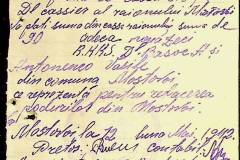 Dl cassier al raionului Mostovoi
Va dati suma din cassa raionului suma de
90 adeca
Antonenco Vasile
din comuna Mostovoi
ce reprezentă pentru refacerea
podurilor din Mostovoi
Mostovoi la 12 luna Mai 1942
Pretor contabil